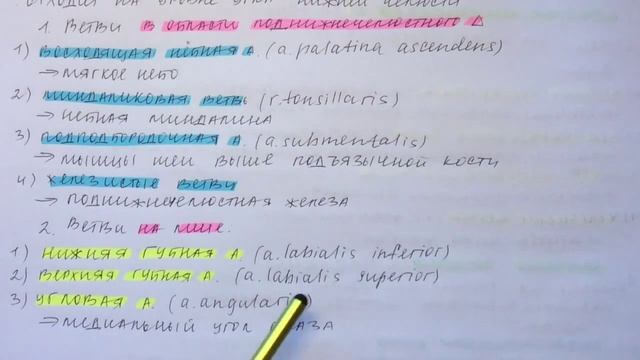 отходит на уровне угла нижней челюсти
1. Ветви в области поднижнечелюстного Δ
1) восходящая нёбная а. (a. palatina ascendens)
→ мягкое нёбо
2) миндаликовая ветвь (r. tonsillaris)
→ нёбная миндалина
3) подподбородочная а. (a. submentalis)
→ мышцы шеи выше подъязычной кости
4) железистые ветви
→ поднижнечелюстная железа
2. Ветви на лице.
1) нижняя губная а. (a. labialis inferior)
2) верхняя губная а. (a. labialis superior)
3) угловая а. (a. angularis)
→ медиальный угол глаза